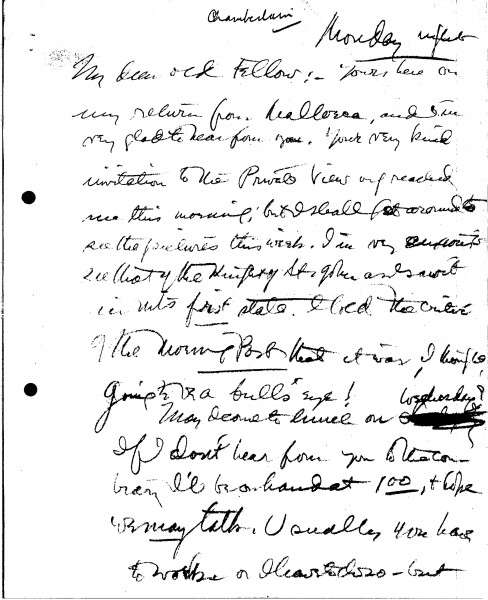 Chamberlain
Monday night
My dear old Fellow:- Yours here on
my return from Mallorca, and I'm
very glad to hear from you. Your very kind
invitation to the Private View only reached
me this morning, but I shall get around to
see the pictures this week. I'm very anxious to
see that of the Knights of St. John as I saw it
in its first state. I told the critic
of the Morning Post that it was, I thought,
going to be a bull's eye!
Wednesday?
May I come to lunch on
If I don't hear from you to the con-
trary I'll be on hand at 1.00, & hope
we may talk. Usually you have
to work or I have to do so - but